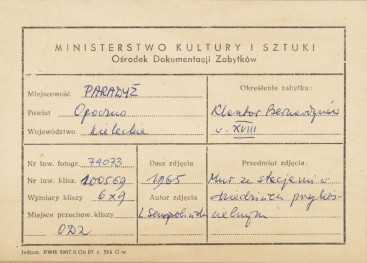 MINISTERSTWO KULTURY I SZTUKI
Ośrodek Dokumentacji Zabytków
Miejscowość PARADYŻ
Powiat Opoczno
Województwo kieleckie
Określenie zabytku:
Klasztor Bernardynów
w. XVIII
Nr inw. fotogr. 79073
Nr inw. klisz. 100569
Wymiary kliszy 6x9
Miejsce przechow. kliszy
ODZ
Data zdjęcia
1965
Autor zdjęcia
Przedmiot zdjęcia:
Mur ze stacjami
przykoś-
cielnym